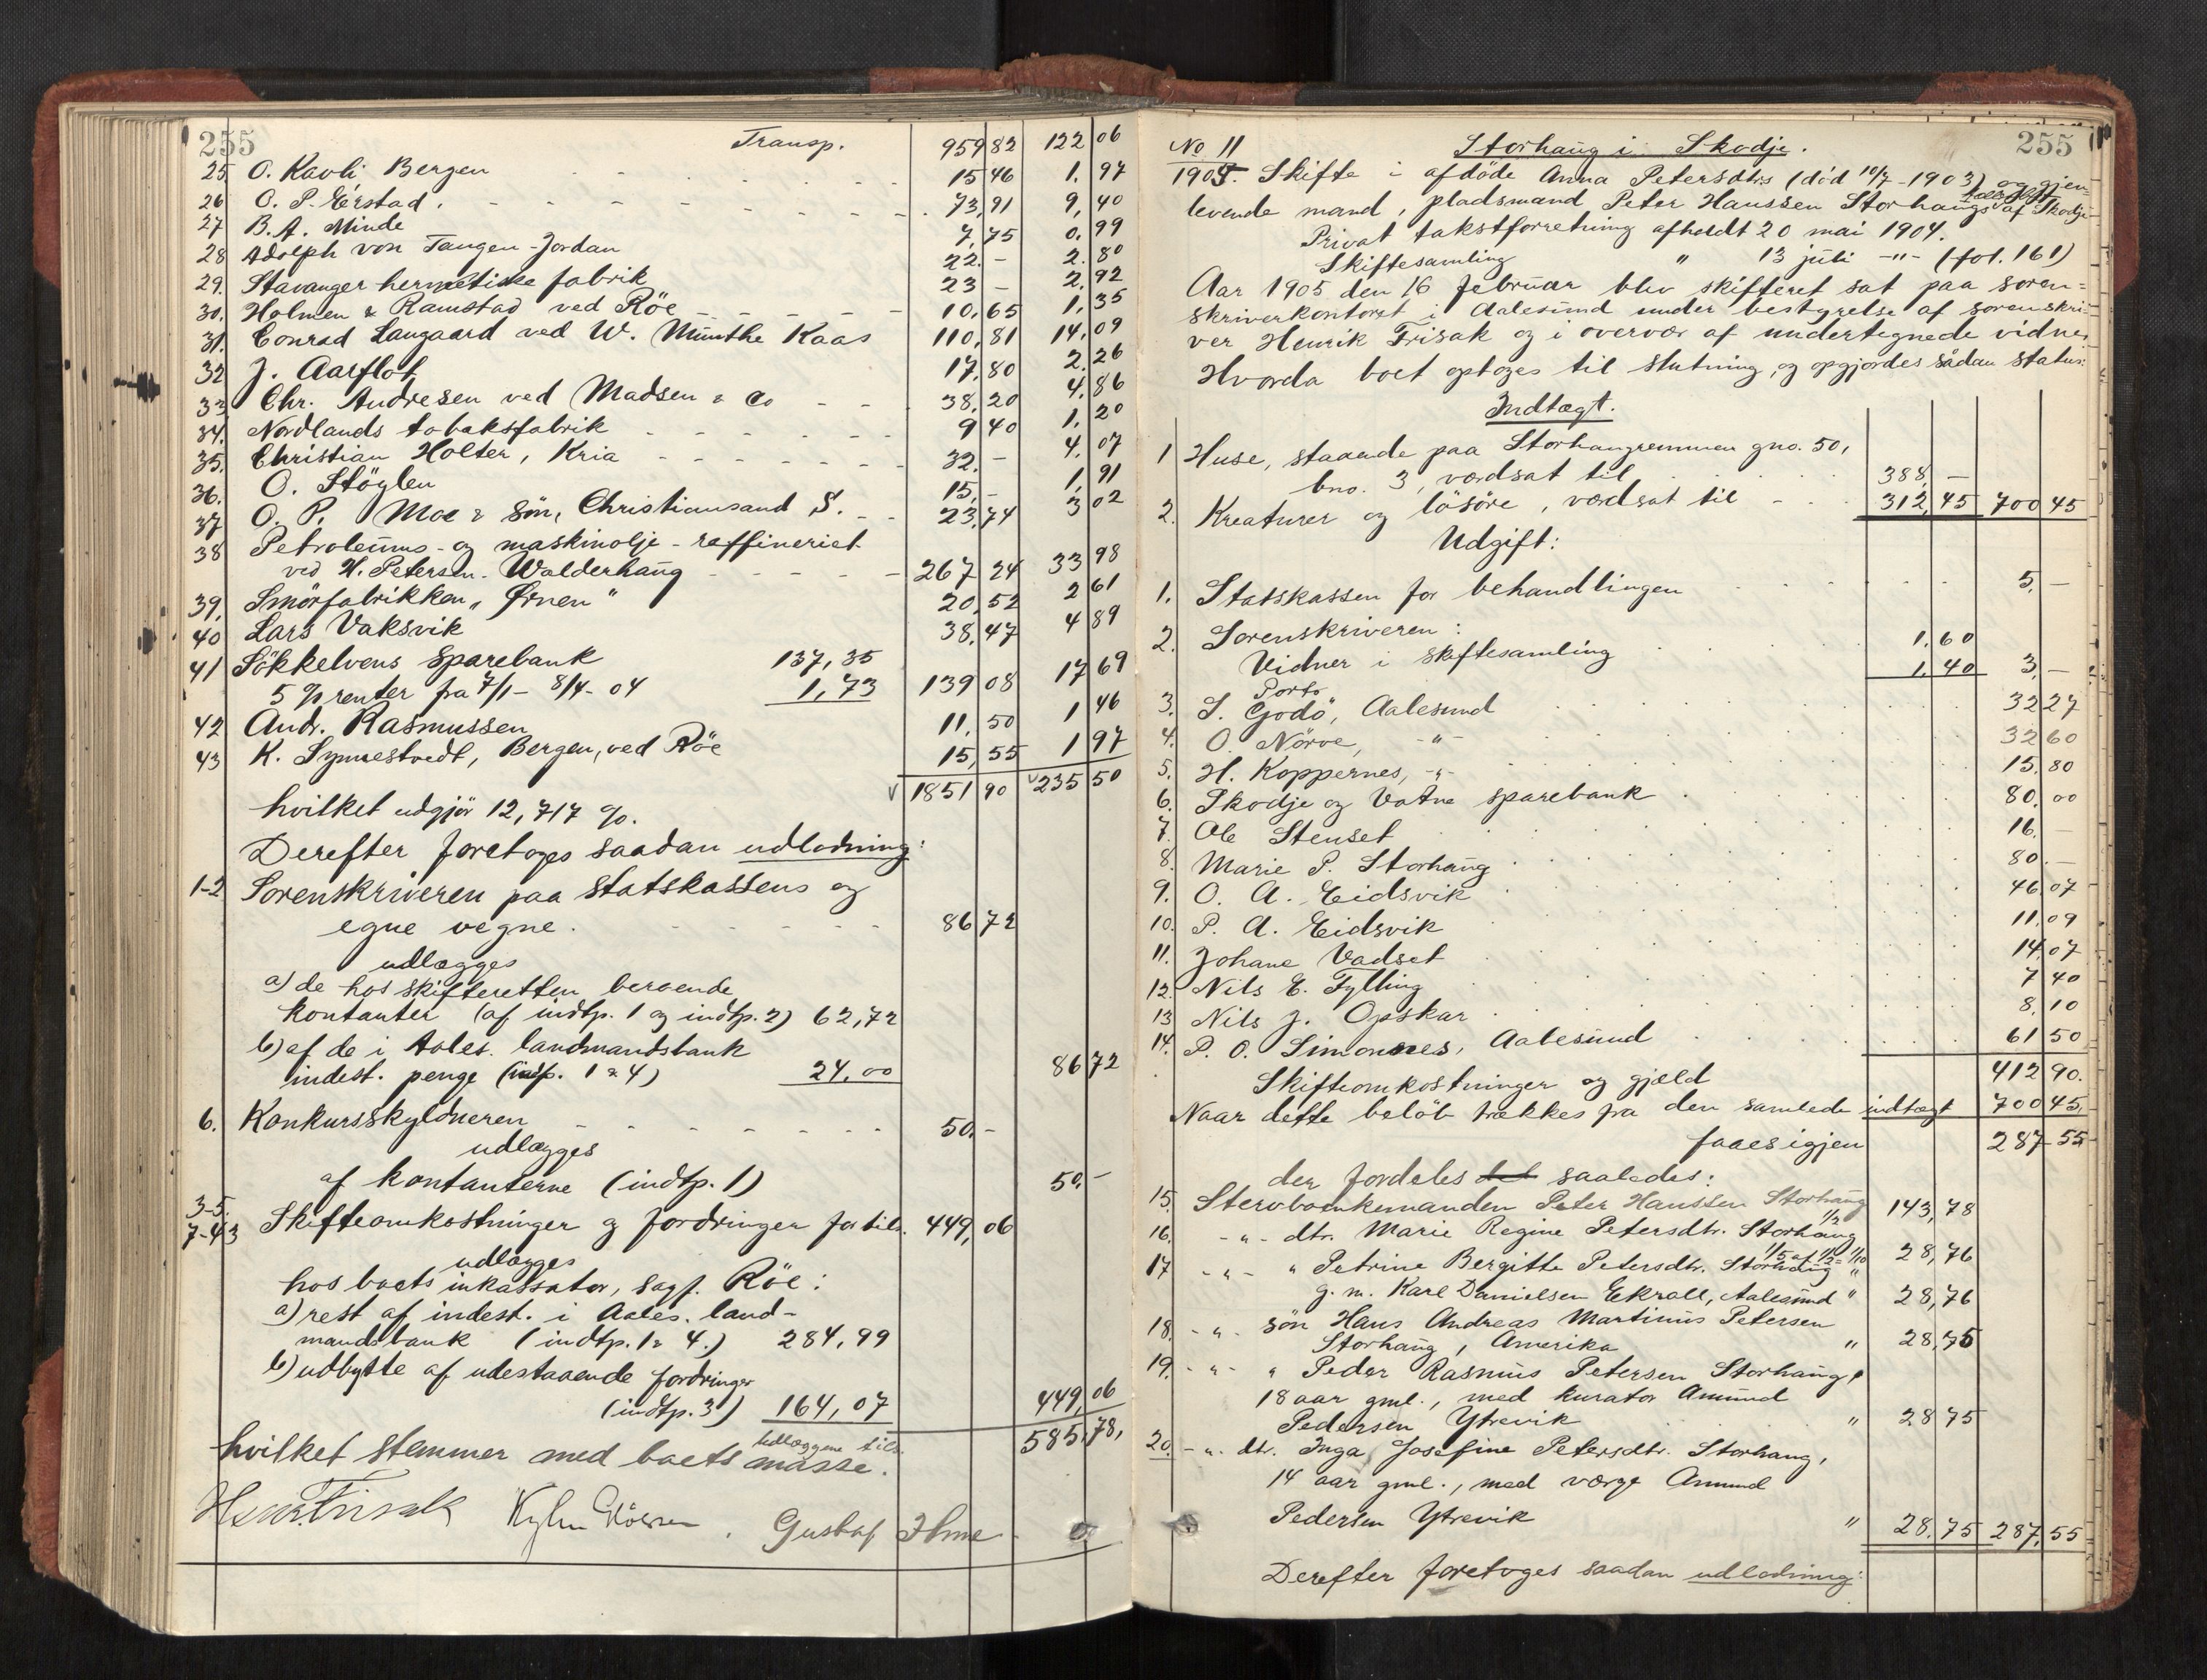 255
Transp. 959 82 122 06
25 O. Kavli Bergen 15 46 1. 97
26 O. P. Eirstad. 73,91 9, 40
27 B. A. Minde 7,75 0. 99
28 Adolph von Tangen-Jordan 22.- 2. 80
29. Stavanger hermetiske fabrik 23 - 2. 92
30. Holmen & Ramstad ved Röe 10,65 1, 35
31. Conrad Langaard ved W. Munthe Kaas 110,81 14, 09
32 J. Aarflot 17,80 2. 26
33 Chr. Andresen ved Madsen & Co 38,20 4, 86
34. Nordlands tobaksfabrik 9 40 1, 20
35. Christian Holter, Kria 32.- 4, 07
36. O. Stöylen 15,- 1, 91
37 O. P. Moe & Sön, Christiansand S. 23,74 3 02
38 Petroleums- og maskinolje-raffineriet
ved H. Petersen. Walderhaug 267 24 33 98
39. Smörfabrikken "Ørnen" 20,52 2 61
40 Lars Vaksvik 38,47 4 89
41 Sökkelvens Sparebank 137,35
5 % renter fra 7/1 - 8/4-04 1,73 139 08 17 69
42 And. Rasmussen 11, 50 1 46
43 K. Synnestvedt, Bergen, ved Röe 15,55 1 97
1851 90 235 50
hvilket udgjör 12,717 %.
Derefter foretoges saadan udlodning:
1-2 Sorenskriveren paa statskassens og
egne vegne. 86 72
udlægges
a) de hos skifteretten beroende
kontanter (af indtp. 1 og indtp. 2) 62,72
b) af de i Aales. landmandsbank
indest. penge (indtp. 1 & 4) 24.00 86 72
6. Konkursskyldneren 50.-
udlægges
af kontanterne (indtp. 1) 50.-
3-5.
7-43 Skifteomkostninger og fordringer for tils. 449, 06
udlægges
hos boets inkassator, sagf. Röe:
a) rest af indest. i Aales. land-
mandsbank (indtp. 1 & 4.) 284,99
b) udbytte af udestaaende fordringer
(indtp. 3) 164,07 449,06
585,78,
udlæggene tils.
hvilket stemmer med boets masse.
Henr. Frisak Gustaf
255
No 11 Storhaug i Skodje.
1905. Skifte i afdöde Anna Petersdtrs (död 10/7-1903) og gjen-
levende mand, pladsmand Peter Hanssen Storhaugs af Skodje
Privat takstforretning afholdt 20 mai 1904.
Skiftesamling " 13 juli -"- (fol. 161)
Aar 1905 den 16 februar blev skifteret sat paa soren-
skriverkontoret i Aalesund under bestyrelse af sorenskri-
ver Henrik Frisak og i overvær af undertegnede vidner
Hvorda boet optoges til slutning, og opgjordes sådan status:
Indtægt.
1 Huse, staaende paa Storhaugremmen gno. 50,
bno. 3, værdsat til 388,-
2. Kreaturer og lösöre, værdsat til 312,45 700 45
Udgift:
1. Statskassen for behandlingen 5,-
2. Sorenskriveren: 1,60
Vidner i skiftesamling 1,40 3,-
Porto
3. S. Godö, Aalesund 32 27
4. O. Nörve, -"- 32 60
5. H. Koppernes, -"- 15. 80
6. Skodje og Vatne sparebank 80,00
7. Ole Stenset 16.
8. Marie P. Storhaug 80.-
9. O. A. Eidsvik 46,07
10. P. A. Eidsvik 11,09
11. Johane Vadset 14,07
12. Nils E. Fylling 7 40
13 Nils J. Opskar 8,10
14. P. O. Simonnes, Aalesund 61 50
Skifteomkostninger og gjæld 412 90.
Naar dette belöb trækkes fra den samlede indtægt 700 45.
faaes igjen 287 55
der fordeles saaledes:
15. Stervboenkemanden Peter Hanssen Storhaug 1/2 143,78
16. -"- dtr. Marie Regine Petersdtr. Storhaug 1/5 af 1/2 = 1/10 28,76
17 -"- " Petrine Bergitte Petersdtr. Storhaug "
g. m. Karl Danielsen Ekroll, Aalesund " 28,76
18. -"- sön Hans Andreas Martinus Petersen
Storhaug, Amerika " 28,75
19. -"- " Peder Rasmus Petersen Storhaug,
18 aar gml., med kurator Amund
Pedersen Ytrevik " 28 75
20. -"- dtr. Inga Josefine Petersdtr. Storhaug,
14 aar gml., med værge Amund
Pedersen Ytrevik " 28.75 287,55
Derefter foretoges saadan udlodning: